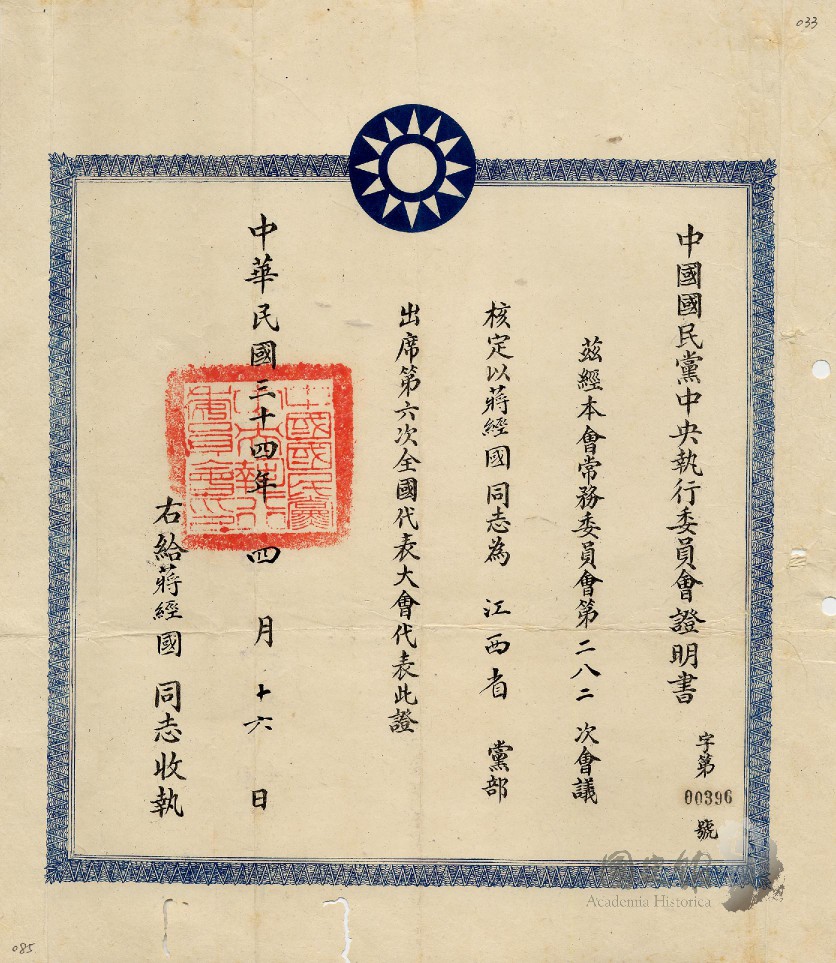 033
中國國民黨中央執行委員會證明書
字第00396號
茲經本會常務委員會第二八二次會議
核定以蔣經國同志為 江西省 黨部
出席第六次全國代表大會代表此證
中華民國三十四年 四 月 十六 日
右給蔣經國 同志收執
中國國民黨中央執行委員會印
國史館
Academia Historica
085